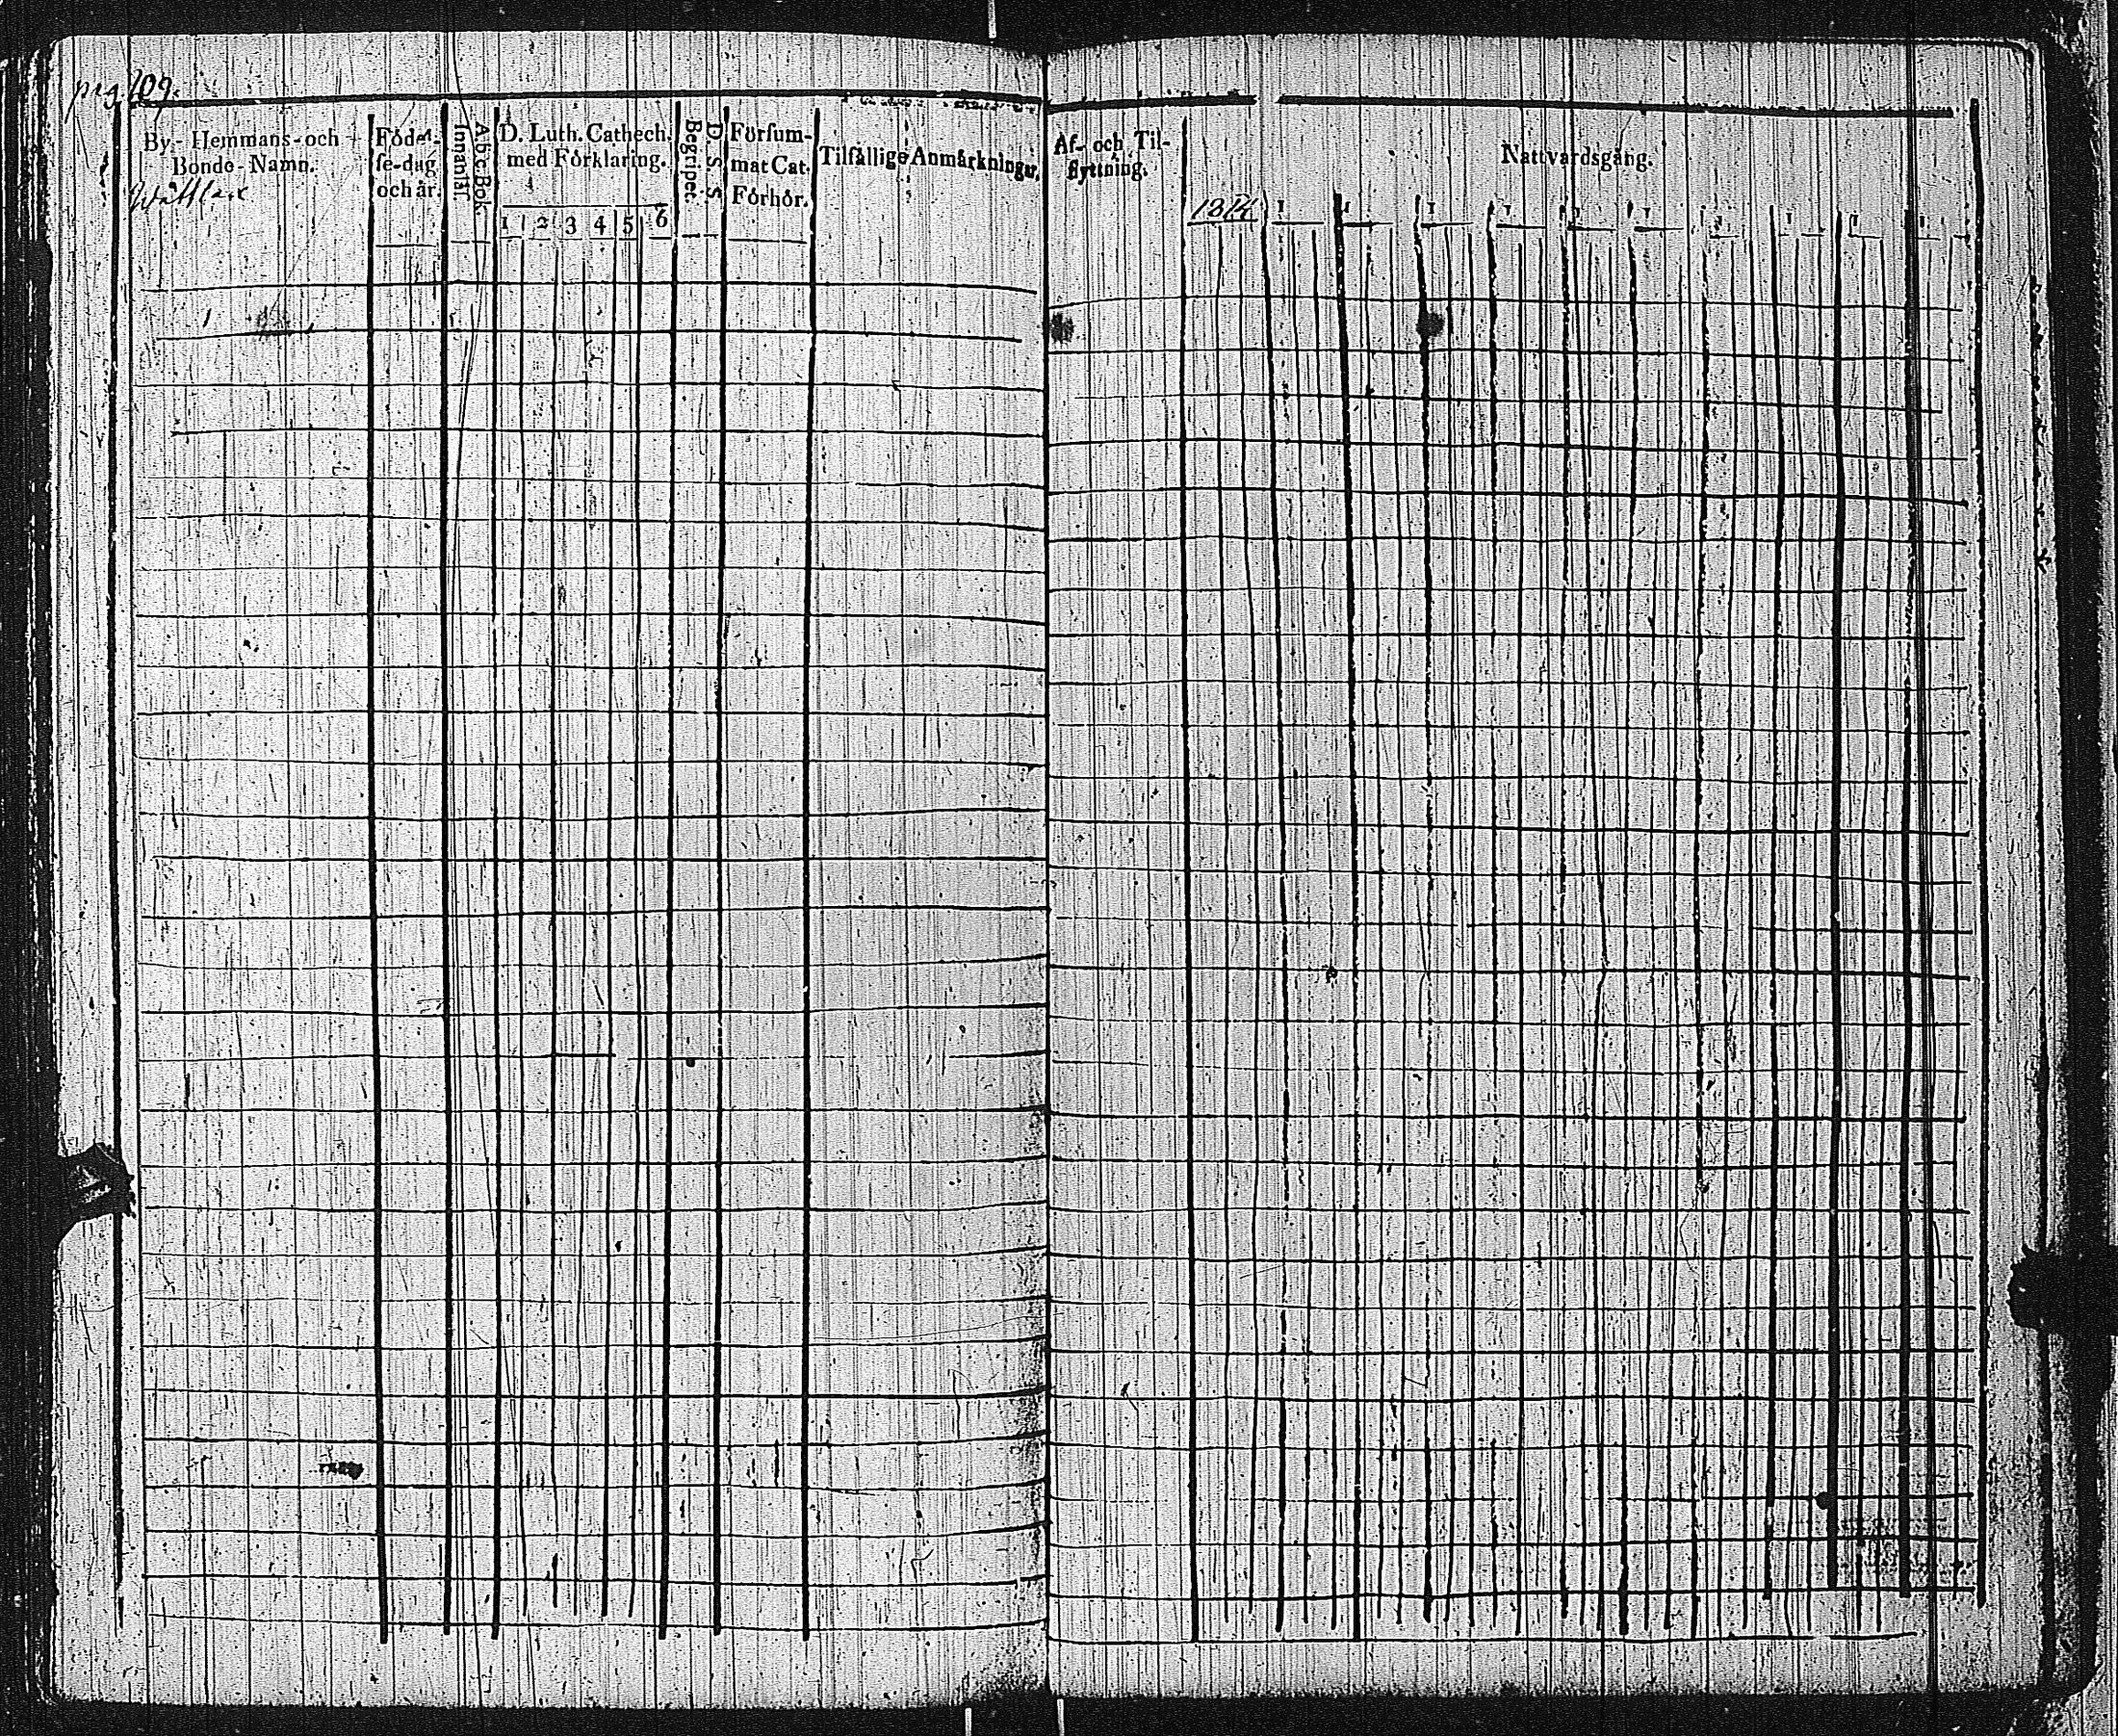 pag. 109.
By- Hemmans- och
Bonde-Namn.
Födel-
se-dag
och år.
A b c Bok.
Innanläs.
D. Luth. Cathech.
med Förklaring.
1 2 3 4 5 6
D. S. S.
Begripet.
Försum-
mat Cat.
Förhör.
Tilfällige Anmärkningar.
Af- och Til-
flyttning.
Nattvardsgång.
1 1 1 1 1 1 1 1 1 1